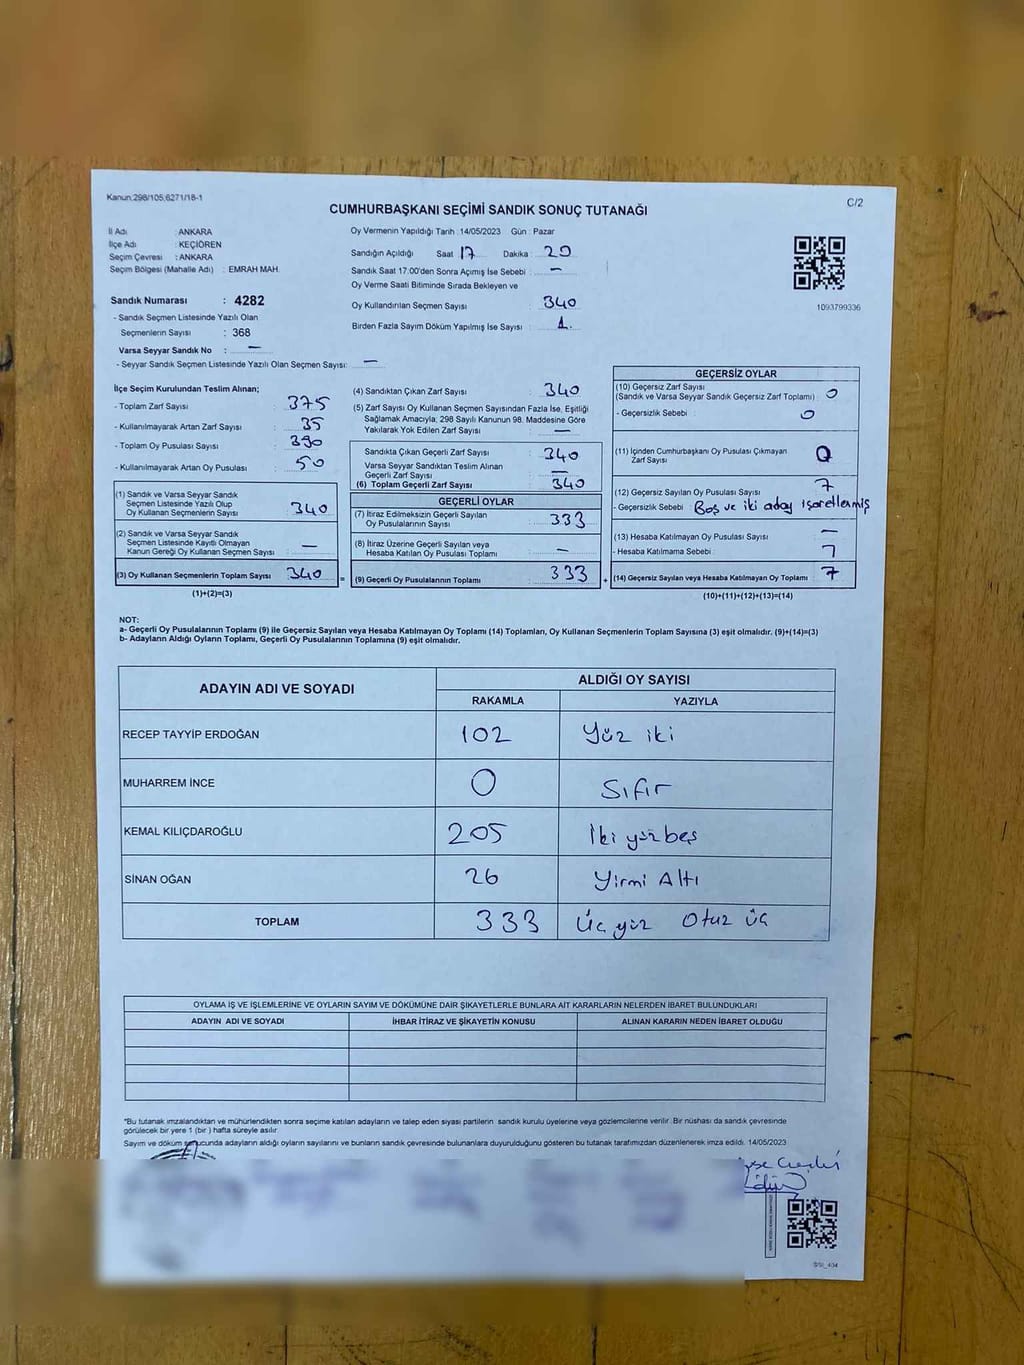 Kanun:298/105;6271/18-1
C/2
CUMHURBAŞKANI SEÇİMİ SANDIK SONUÇ TUTANAĞI
İl Adı : ANKARA
İlçe Adı : KEÇİÖREN
Seçim Çevresi : ANKARA
Seçim Bölgesi (Mahalle Adı) : EMRAH MAH.
Sandık Numarası : 4282
- Sandık Seçmen Listesinde Yazılı Olan
Seçmenlerin Sayısı : 368
Varsa Seyyar Sandık No : —
- Seyyar Sandık Seçmen Listesinde Yazılı Olan Seçmen Sayısı: —
Oy Vermenin Yapıldığı Tarih :14/05/2023 Gün : Pazar
Sandığın Açıldığı Saat 17 Dakika : 20
Sandık Saat 17.00'den Sonra Açımış İse Sebebi : —
Oy Verme Saati Bitiminde Sırada Bekleyen ve
Oy Kullandırılan Seçmen Sayısı : 340
Birden Fazla Sayım Döküm Yapılmış İse Sayısı : 1.
1093799336
İlçe Seçim Kurulundan Teslim Alınan;
- Toplam Zarf Sayısı : 375
- Kullanılmayarak Artan Zarf Sayısı : 35
- Toplam Oy Pusulası Sayısı : 390
- Kullanılmayarak Artan Oy Pusulası : 50
(1) Sandık ve Varsa Seyyar Sandık
Seçmen Listesinde Yazılı Olup
Oy Kullanan Seçmenlerin Sayısı : 340
(2) Sandık ve Varsa Seyyar Sandık
Seçmen Listesinde Kayıtlı Olmayan
Kanun Gereği Oy Kullanan Seçmen Sayısı : —
(3) Oy Kullanan Seçmenlerin Toplam Sayısı : 340
(1)+(2)=(3)
=
(4) Sandıktan Çıkan Zarf Sayısı : 340
(5) Zarf Sayısı Oy Kullanan Seçmen Sayısından Fazla İse, Eşitliği
Sağlamak Amacıyla, 298 Sayılı Kanunun 98. Maddesine Göre
Yakılarak Yok Edilen Zarf Sayısı : —
Sandıkta Çıkan Geçerli Zarf Sayısı : 340
Varsa Seyyar Sandıktan Teslim Alınan
Geçerli Zarf Sayısı : —
(6) Toplam Geçerli Zarf Sayısı : 340
GEÇERLİ OYLAR
(7) İtiraz Edilmeksizin Geçerli Sayılan
Oy Pusulalarının Sayısı : 333
(8) İtiraz Üzerine Geçerli Sayılan veya
Hesaba Katılan Oy Pusulası Toplamı : —
(9) Geçerli Oy Pusulalarının Toplamı : 333
+
GEÇERSİZ OYLAR
(10) Geçersiz Zarf Sayısı
(Sandık ve Varsa Seyyar Sandık Geçersiz Zarf Toplamı) : 0
- Geçersizlik Sebebi : 0
(11) İçinden Cumhurbaşkanı Oy Pusulası Çıkmayan
Zarf Sayısı : 0
(12) Geçersiz Sayılan Oy Pusulası Sayısı : 7
- Geçersizlik Sebebi : Boş ve iki aday işaretlenmiş
(13) Hesaba Katılmayan Oy Pusulası Sayısı : —
- Hesaba Katılmama Sebebi : 7
(14) Geçersiz Sayılan veya Hesaba Katılmayan Oy Toplamı : 7
(10)+(11)+(12)+(13)=(14)
NOT:
a- Geçerli Oy Pusulalarının Toplamı (9) ile Geçersiz Sayılan veya Hesaba Katılmayan Oy Toplamı (14) Toplamları, Oy Kullanan Seçmenlerin Toplam Sayısına (3) eşit olmalıdır. (9)+(14)=(3)
b- Adayların Aldığı Oyların Toplamı, Geçerli Oy Pusulalarının Toplamına (9) eşit olmalıdır.
ADAYIN ADI VE SOYADI
ALDIĞI OY SAYISI
RAKAMLA YAZIYLA
RECEP TAYYİP ERDOĞAN 102 Yüz iki
MUHARREM İNCE 0 Sıfır
KEMAL KILIÇDAROĞLU 205 İki yüz beş
SİNAN OĞAN 26 Yirmi Altı
TOPLAM 333 Üç yüz Otuz üç
OYLAMA İŞ VE İŞLEMLERİNE VE OYLARIN SAYIM VE DÖKÜMÜNE DAİR ŞİKAYETLERLE BUNLARA AİT KARARLARIN NELERDEN İBARET BULUNDUKLARI
ADAYIN ADI VE SOYADI İHBAR İTİRAZ VE ŞİKAYETİN KONUSU ALINAN KARARIN NEDEN İBARET OLDUĞU
*Bu tutanak imzalandıktan ve mühürlendikten sonra seçime katılan adayların ve talep eden siyasi partilerin sandık kurulu üyelerine veya gözlemcilerine verilir. Bir nüshası da sandık çevresinde
görülecek bir yere 1 (bir) hafta süreyle asılır.
Sayım ve döküm sonucunda adayların aldığı oyların sayılarını ve bunların sandık çevresinde bulunanlara duyurulduğunu gösteren bu tutanak tarafımızdan düzenlenerek imza edildi. 14/05/2023